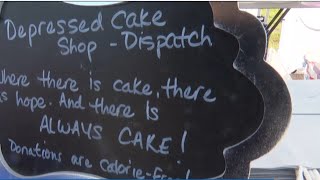 Depressed Cake
Shop - Dispatch
Where there is cake, there
is hope. And there Is
ALWAYS CAKE!
Donations are calorie-Free!